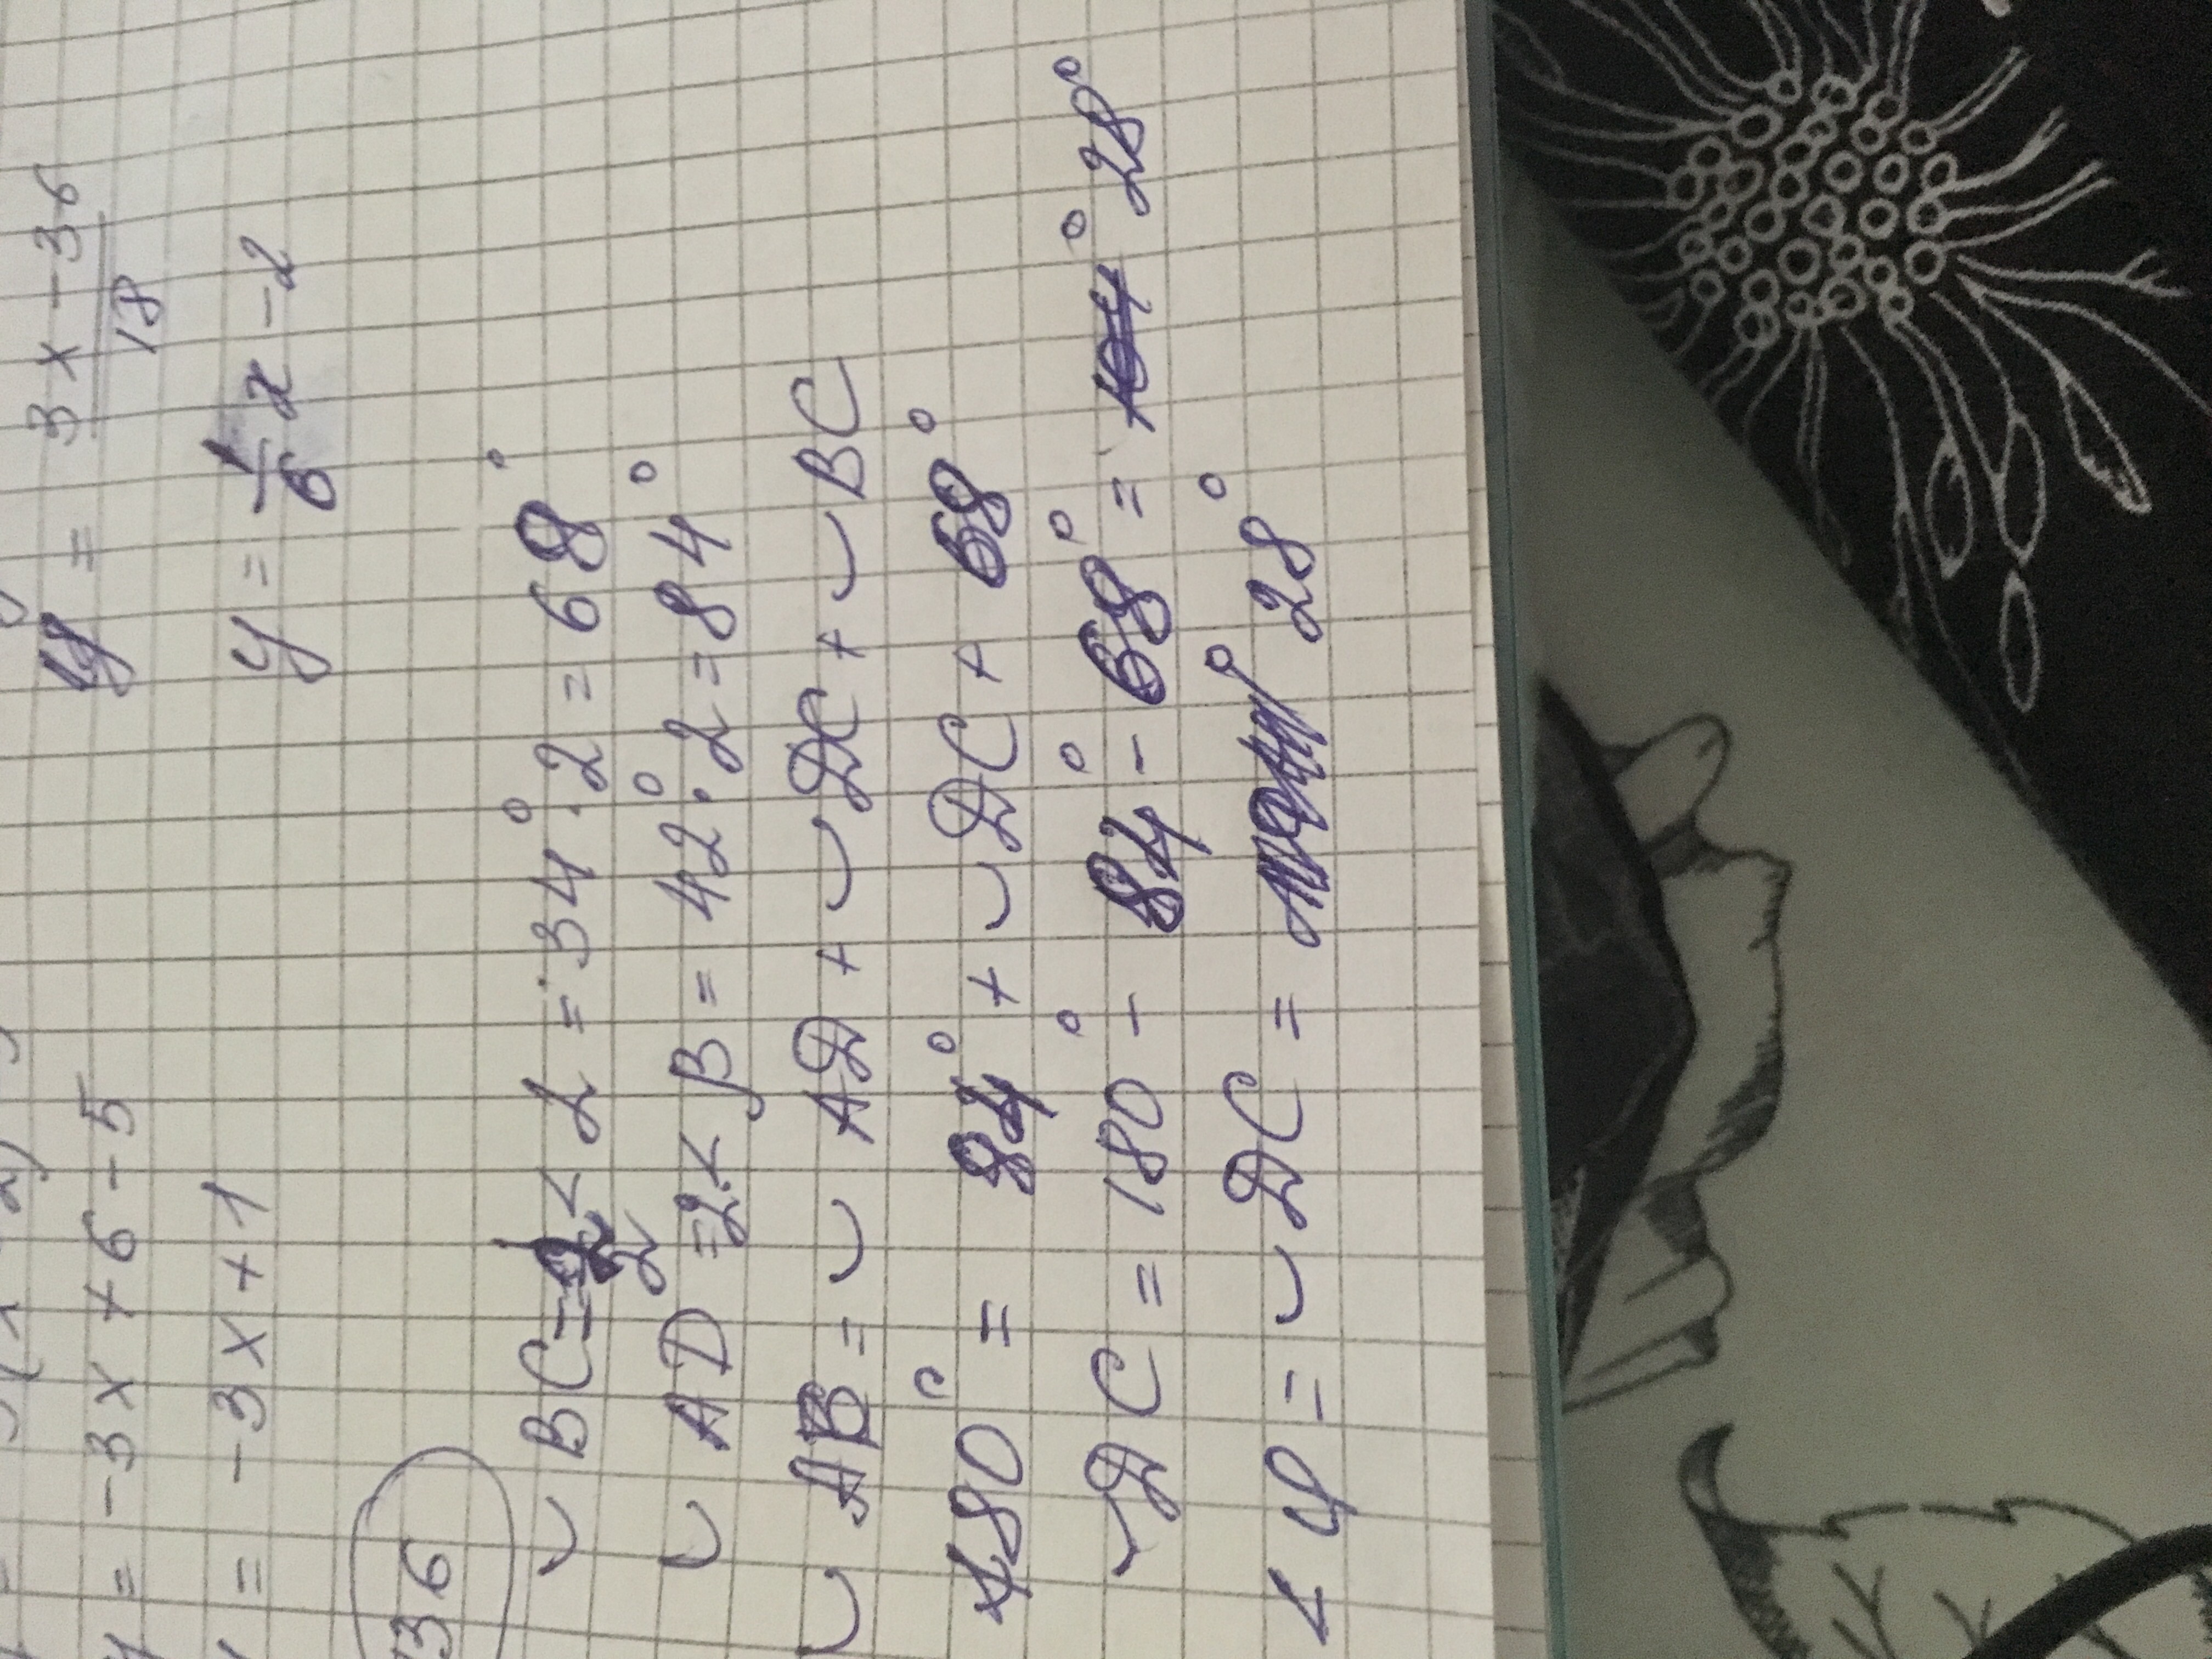 y = 3x - 36 / 18
y = 1/6 x - 2
= -3x + 6 - 5
= -3x + 1
136
◡ BC = 2 < α = 34° · 2 = 68°
◡ AD = 2 < β = 42° · 2 = 84°
◡ AB = ◡ AD + ◡ DC + ◡ BC
180° = 84° + ◡ DC + 68°
◡ DC = 180° - 84° - 68° = 28°
< φ = ◡ DC = 28°